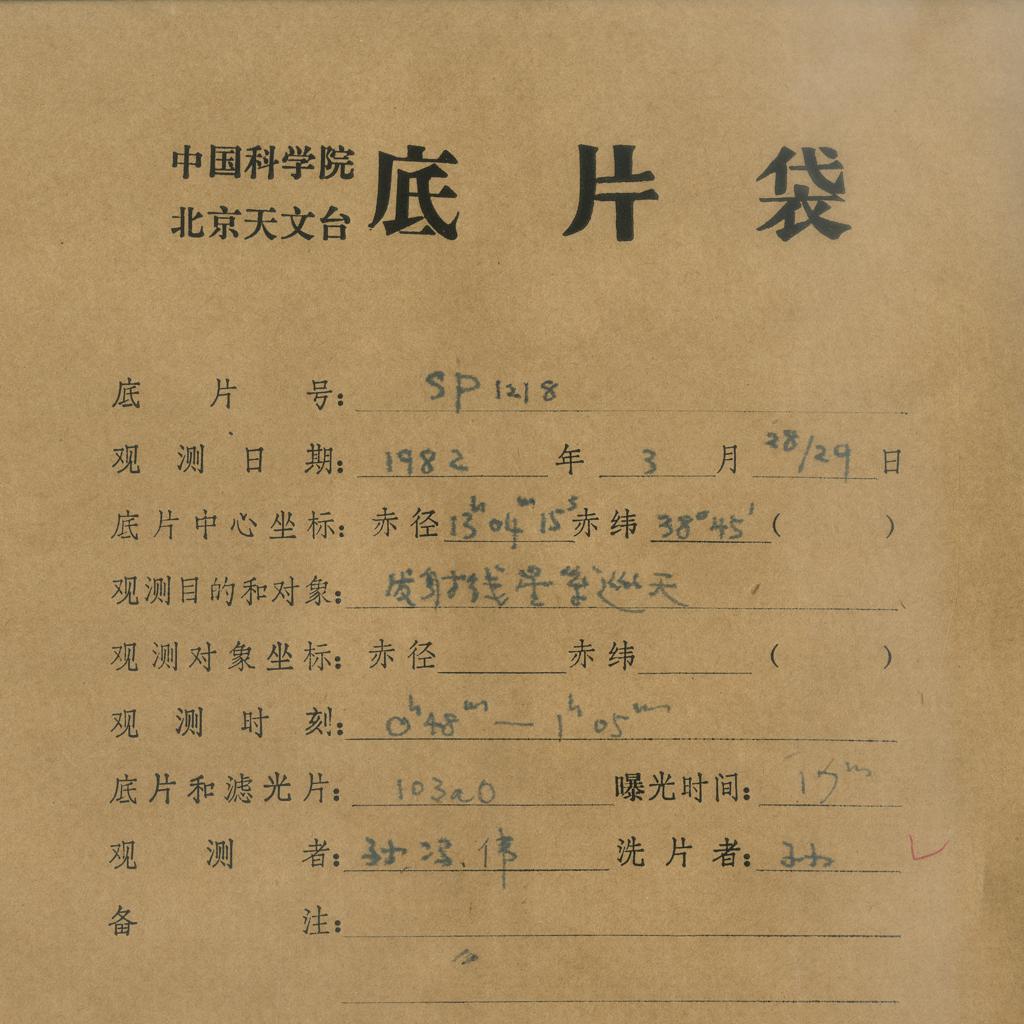 中国科学院
北京天文台
底片袋
底片号: SP1218
观测日期: 1982年3月28/29日
底片中心坐标: 赤径13ʰ04ᵐ15ˢ赤纬38°45′( )
观测目的和对象: 发射线星系巡天
观测对象坐标: 赤径 赤纬 ( )
观测时刻: 0ʰ48ᵐ—1ʰ05ᵐ
底片和滤光片: 103aO 曝光时间:
观测者: 孙 伟 洗片者: 孙
备注: